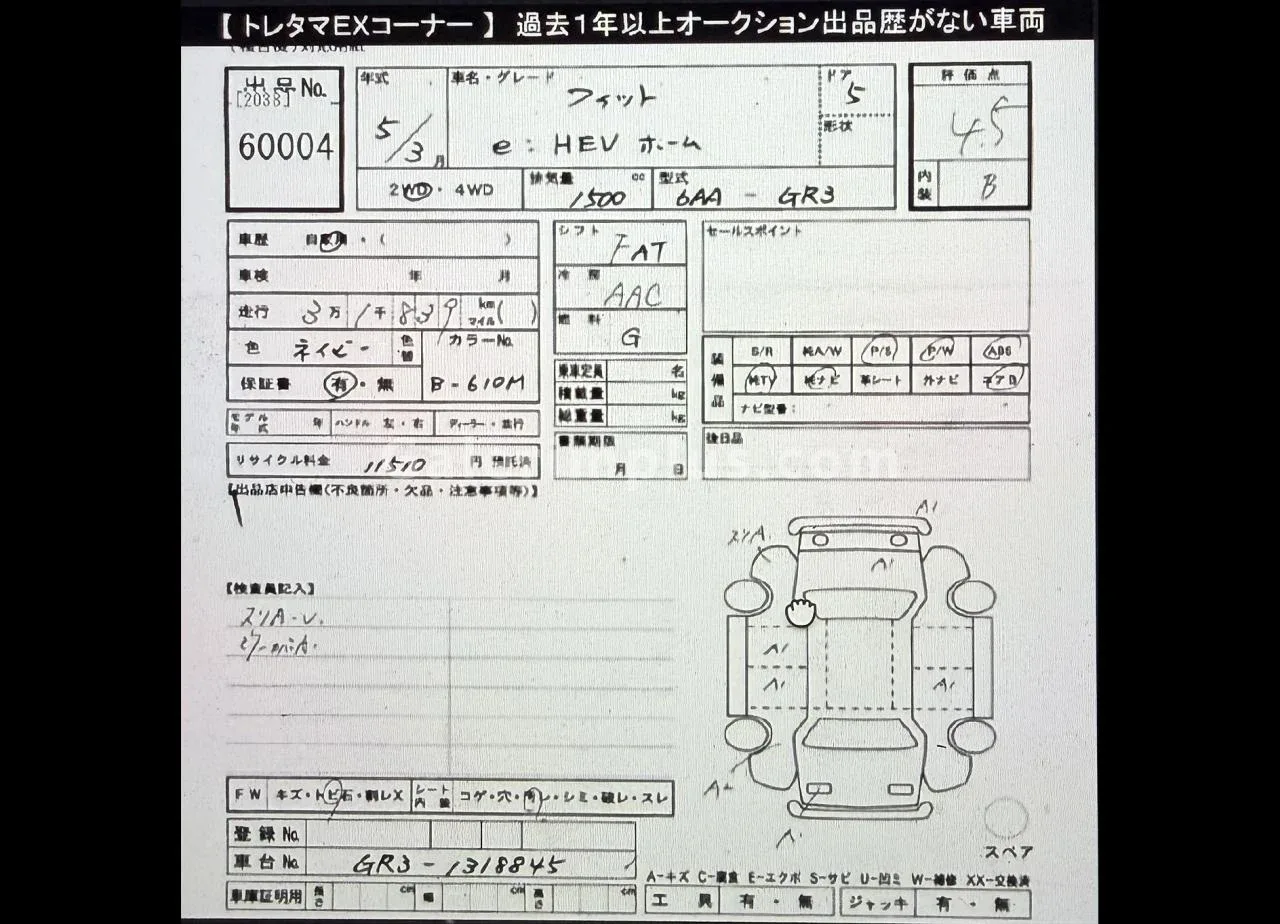 【 トレタマEXコーナー 】 過去1年以上オークション出品歴がない車両
出品No.
[2038]
60004
年式
5/3月
車名・グレード
フィット
e:HEV ホーム
ドア
5
形状
評価点
4.5
内装
B
2WD・4WD
排気量 1500 cc
型式 6AA - GR3
車歴 自家用・( )
車検 年 月
走行 3万1千839 km マイル( )
色 ネイビー 色替
カラーNo.
B-610M
保証書 有・無
モデル年式 年 ハンドル 左・右 ディーラー・並行
リサイクル料金 11510 円 預託済
シフト
FAT
冷房
AAC
燃料
G
乗車定員 名
積載量 kg
総重量 kg
書類期限
月 日
セールスポイント
装備品
S/R 純A/W P/S P/W ABS
純TV 純ナビ 革シート 外ナビ エアB
ナビ型番:
後日品
【出品店申告欄(不良箇所・欠品・注意事項等)】
【検査員記入】
スリA・U.
A1
スリA.
A1
A1
A1
A1
スペア
FW キズ・トビ石・割レX シート内装 コゲ・穴・切レ・シミ・破レ・スレ
登録No.
車台No. GR3-1318845
車庫証明用 長さ cm 幅 cm 高さ cm
A-キズ C-腐食 E-エクボ S-サビ U-凹ミ W-補修 XX-交換済
工具 有・無 ジャッキ 有・無